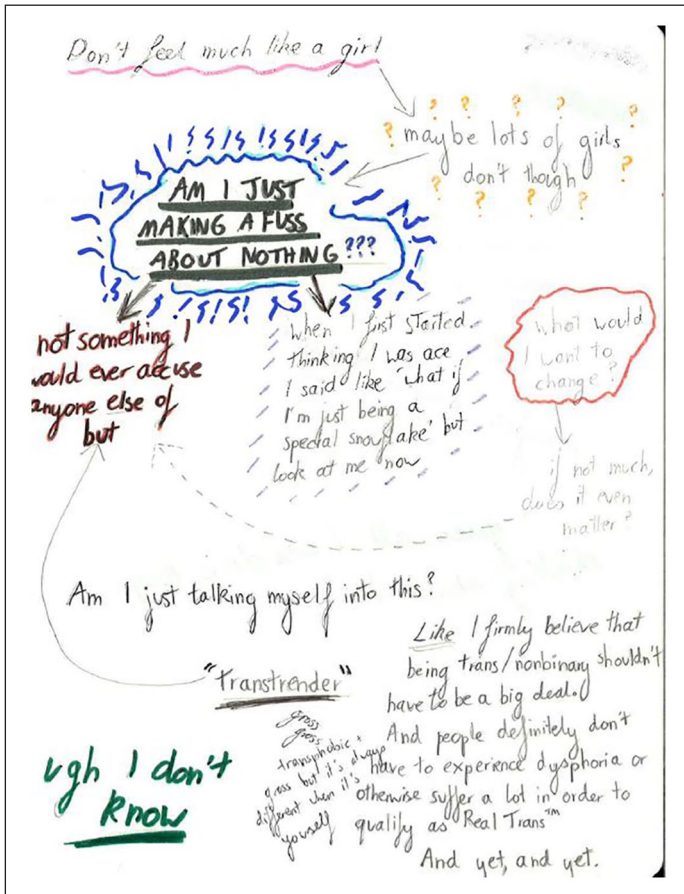 Don't feel much like a girl
? ? ? ? ? ?
? maybe lots of girls ?
don't though
? ? ? ? ? ?
AM I JUST
MAKING A FUSS
ABOUT NOTHING ???
not something I
would ever accuse
anyone else of
but
when I first started
thinking I was ace
I said like 'what if
I'm just being a
special snowflake' but
look at me now
what would
I want to
change?
if not much,
does it even
matter?
Am I just talking myself into this?
"Transtrender"
gross
gross
transphobic +
gross but it's always
different when it's
yourself
Like I firmly believe that
being trans/nonbinary shouldn't
have to be a big deal.
And people definitely don't
have to experience dysphoria or
otherwise suffer a lot in order to
qualify as Real Trans™
And yet, and yet.
ugh I don't
know